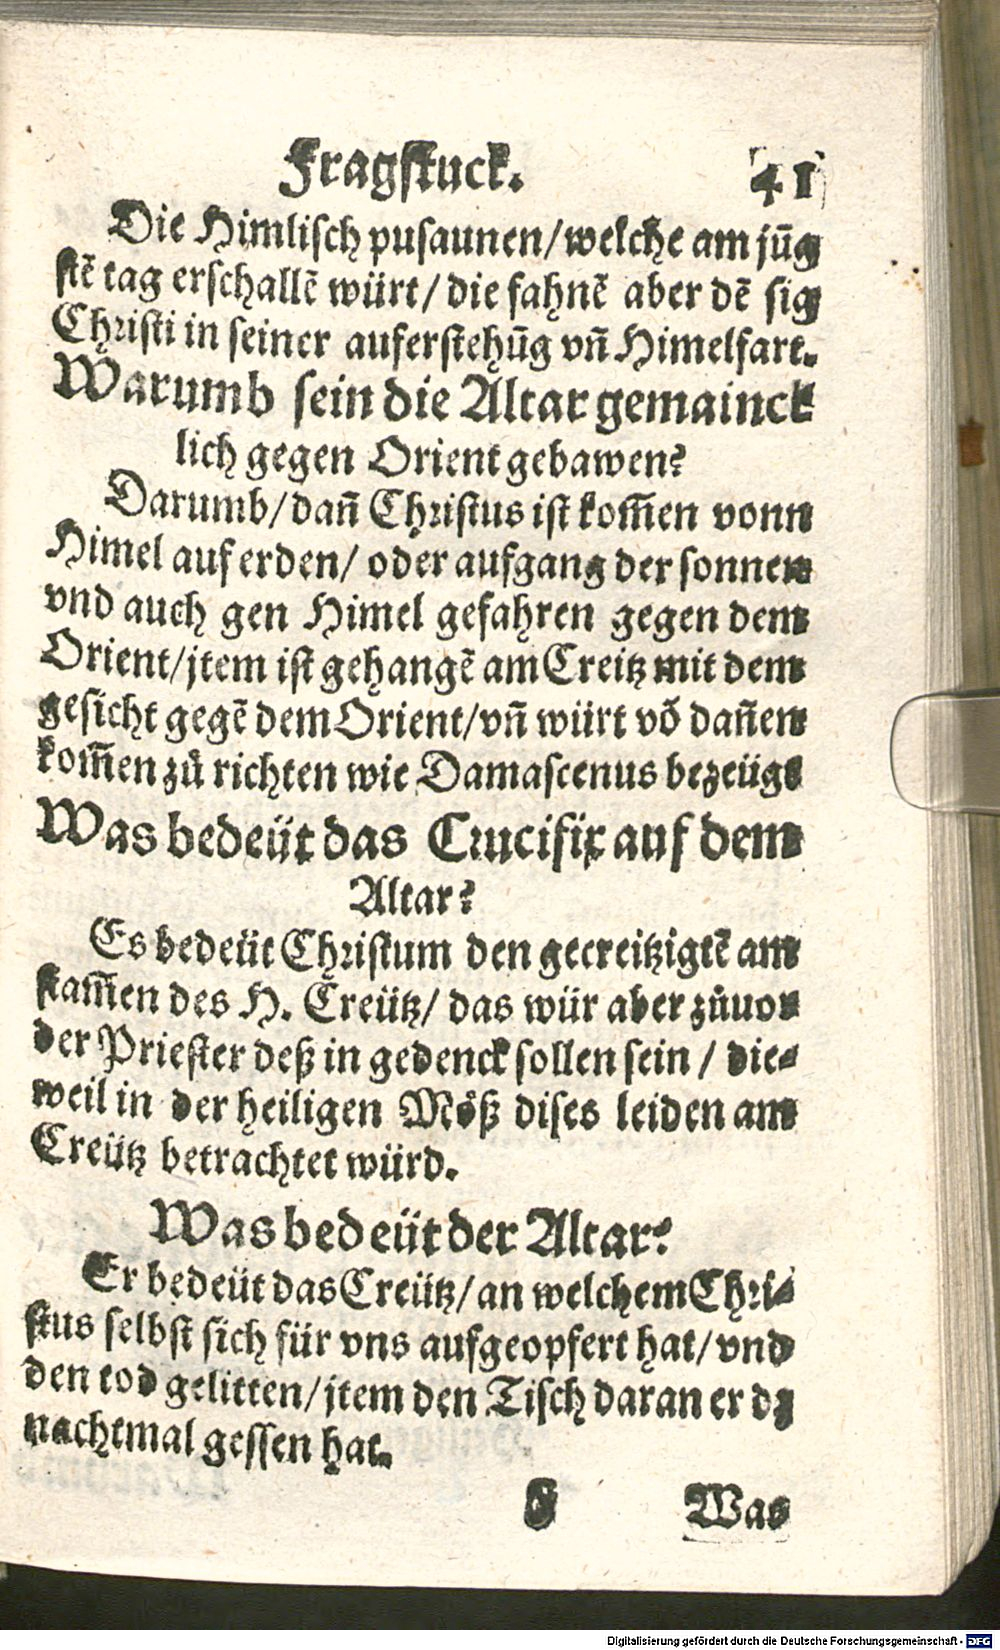 Fragſtuck. 41
Die Himliſch puſaunen/welche am jūg
ſtē tag erſchallē würt/die fahnē aber dē ſig
Chriſti in ſeiner auferſtehūg vn̄ Himelfart.
Warumb ſein die Altar gemainck
lich gegen Orient gebawen?
Darumb/dan̄ Chriſtus iſt kom̄en vonn
Himel auf erden/ oder aufgang der ſonnen
vnd auch gen Himel gefahren gegen dem
Orient/jtem iſt gehangē am Creitz mit dem
geſicht gegē dem Orient/vn̄ würt vō dan̄en
kom̄en zů richten wie Damaſcenus bezeügt
Was bedeüt das Crucifix auf dem
Altar?
Es bedeüt Chriſtum den gecreitzigtē am
ſtam̄en des H. Creütz/ das wür aber zůuor
der Prieſter deß in gedenck ſollen ſein / die-
weil in der heiligen Möß diſes leiden am
Creütz betrachtet würd.
Was bedeüt der Altar?
Er bedeüt das Creütz/an welchem Chri-
ſtus ſelbſt ſich für vns aufgeopfert hat/vnd
den tod gelitten/jtem den Tiſch daran er dz
nachtmal geſſen hat.
Was
Digitalisierung gefördert durch die Deutsche Forschungsgemeinschaft - DFG